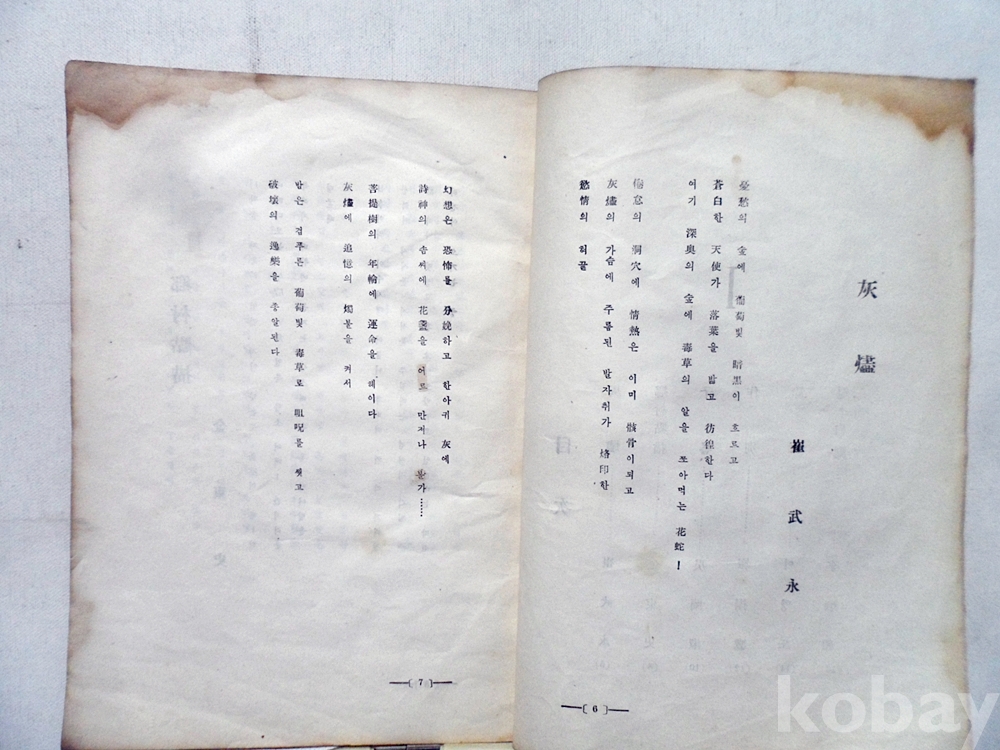 灰燼
崔武永
憂愁의 숲에 葡萄빛 暗黑이 흐르고
蒼白한 天使가 落葉을 밟고 彷徨한다
여기 深奥의 숲에 毒草의 알을 쪼아먹는 花蛇!
倦怠의 洞穴에 情熱은 이미 骸骨이되고
灰燼의 가슴에 주름된 발자취가 烙印한
慾情의 허물
—〔 6 〕—
幻想은 恐怖를 分娩하고 한아귀 灰에
詩神의 솜씨에 花盞을 어르만저나 볼가……
菩提樹의 年輪에 運命을 헤이다
灰燼에 追憶의 燭불을 켜서
밤은 검푸른 葡萄빛 毒草로 咀呪를 씻고
破壞의 逸樂을 종알된다
—〔 7 〕—
kobay